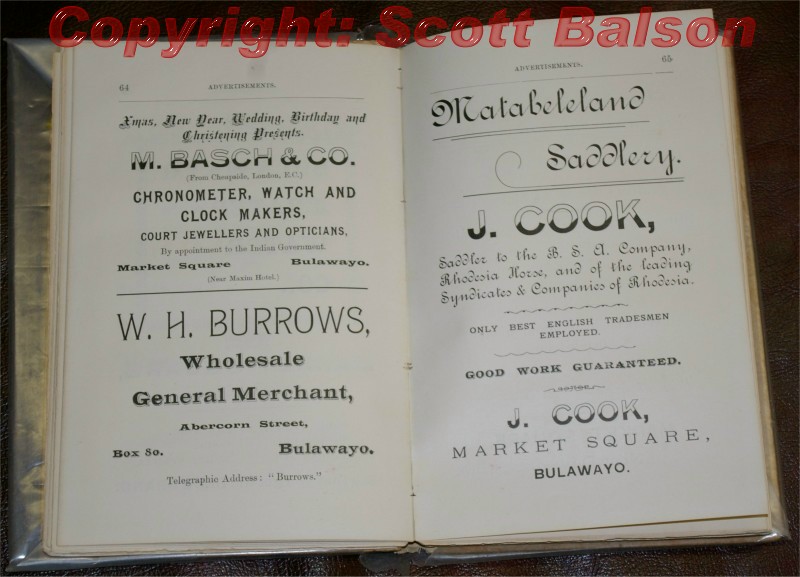 Copyright: Scott Balson
64
ADVERTISEMENTS.
Xmas, New Year, Wedding, Birthday and
Christening Presents.
M. BASCH & CO.
(From Cheapside, London, E.C.)
CHRONOMETER, WATCH AND
CLOCK MAKERS,
COURT JEWELLERS AND OPTICIANS,
By appointment to the Indian Government.
Market Square Bulawayo.
(Near Maxim Hotel.)
W. H. BURROWS,
Wholesale
General Merchant,
Abercorn Street,
Box 80. Bulawayo.
Telegraphic Address: "Burrows."
ADVERTISEMENTS. 65
Matabeleland
Saddlery.
J. COOK,
Saddler to the B. S. A. Company,
Rhodesia Horse, and of the leading
Syndicates & Companies of Rhodesia.
ONLY BEST ENGLISH TRADESMEN
EMPLOYED.
GOOD WORK GUARANTEED.
J. COOK,
MARKET SQUARE,
BULAWAYO.